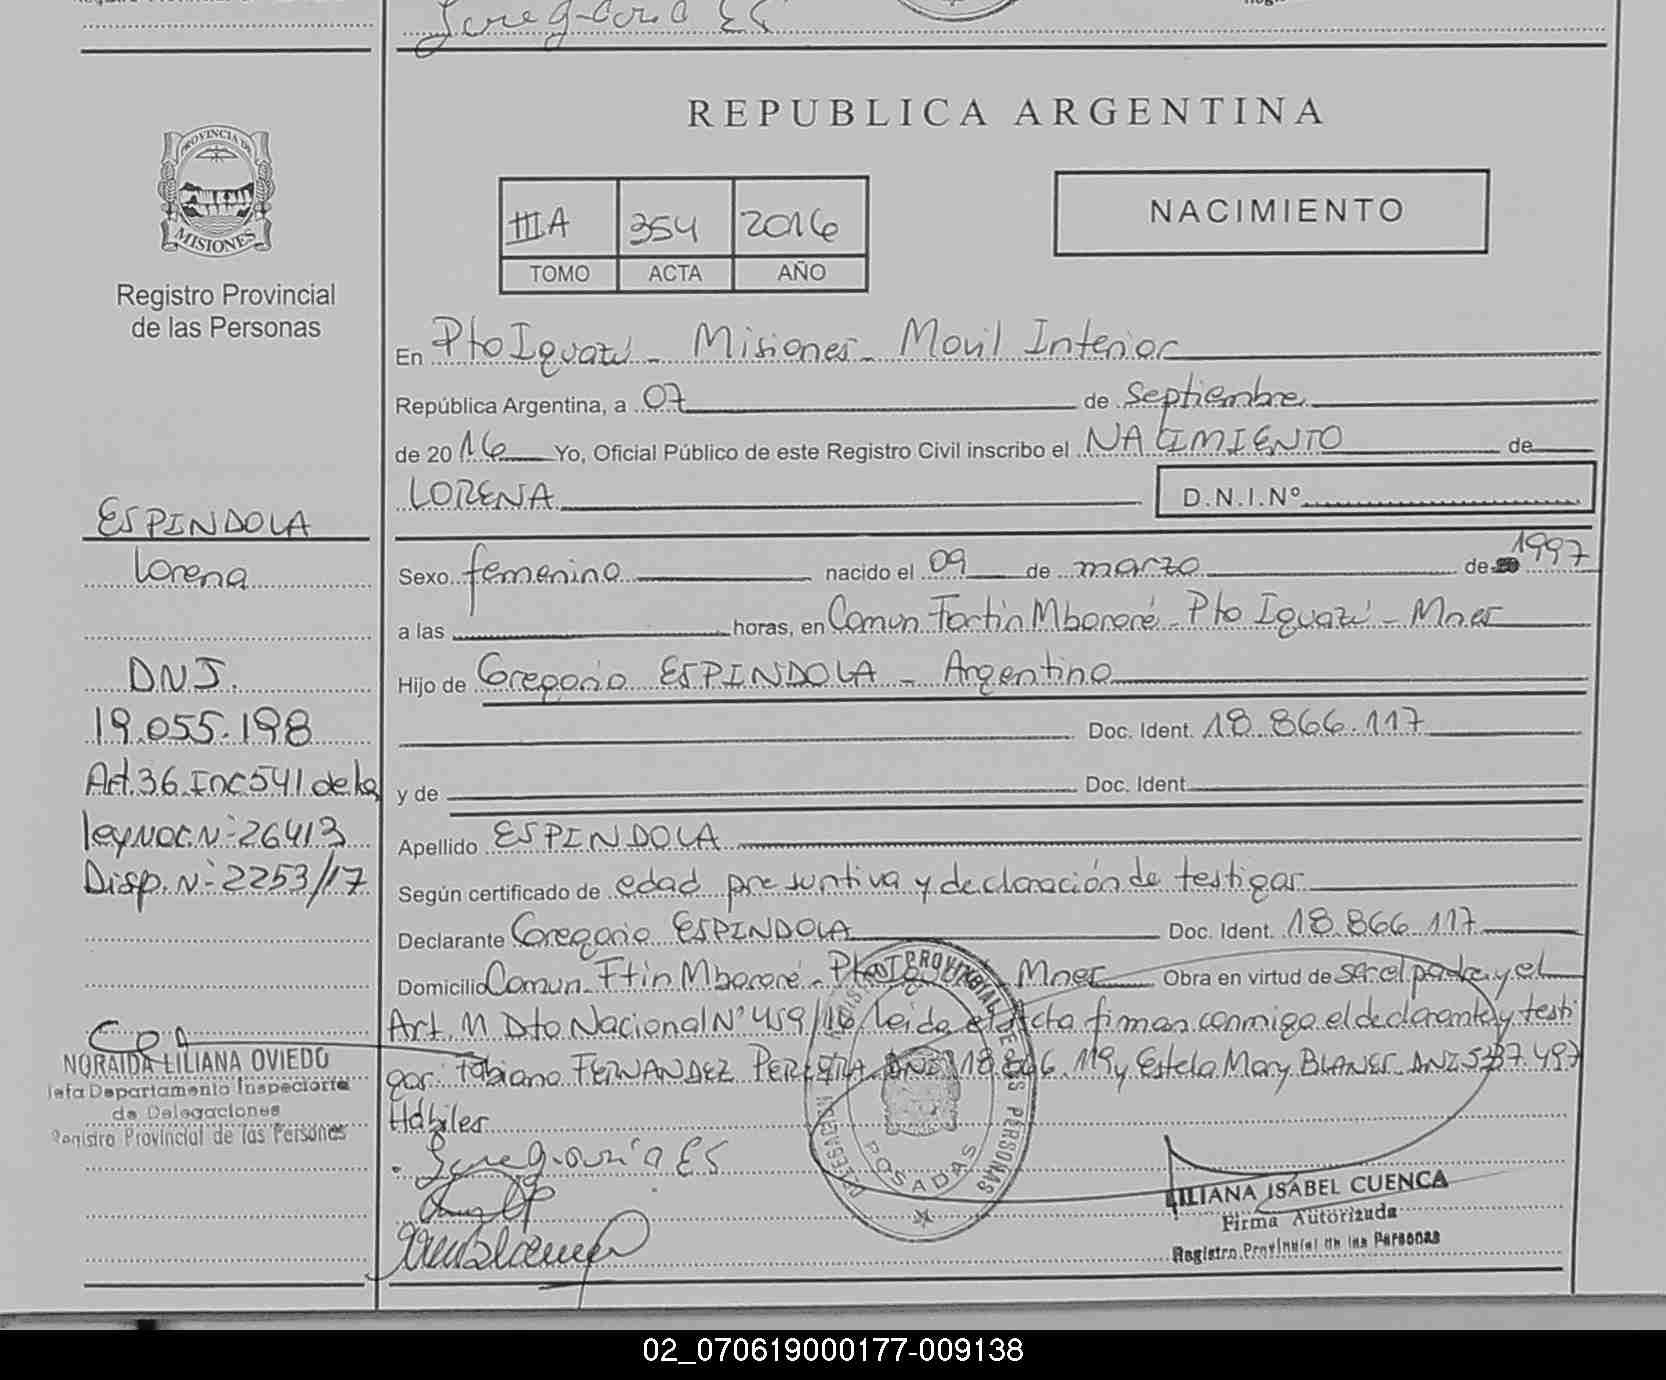 REPUBLICA ARGENTINA
PROVINCIA DE
MISIONES
Registro Provincial
de las Personas
IIIA 354 2016
TOMO ACTA AÑO
NACIMIENTO
En Pto Iguazú - Misiones - Movil Interior
República Argentina, a 07 de septiembre
de 2016 Yo, Oficial Público de este Registro Civil inscribo el NACIMIENTO de
LORENA D.N.I.Nº
Sexo femenino nacido el 09 de marzo de 1997
a las horas, en Comun Fortin Mbororé - Pto Iguazú - Mnes
Hijo de Gregorio ESPINDOLA - Argentino
Doc. Ident. 18.866.117
y de Doc. Ident.
Apellido ESPINDOLA
Según certificado de edad presuntiva y declaración de testigos
Declarante Gregorio ESPINDOLA Doc. Ident. 18.866.117
Domicilio Comun Ftin Mbororé - Pto Mnes Obra en virtud de ser el padre y el
Art. 11 Dto Nacional N° 459/16 leida el acta firman conmigo el declarante y testi
gos: Fabiano FERNANDEZ PEREIRA DNI 18.866.119 y Estela Mary BLANES DNI 5.787.497
Hábiles
ESPINDOLA
Lorena
DNI.
19.055.198
Art.36.Inc 541 de la
ley NOC.N-26413
Disp. N-2253/17
NORAIDA LILIANA OVIEDO
Jefa Departamento Inspectoría
de Delegaciones
Registro Provincial de las Personas
Gregorio ES
POSADAS
LILIANA ISABEL CUENCA
Firma Autorizada
Registro Provincial de las Personas
02_070619000177-009138